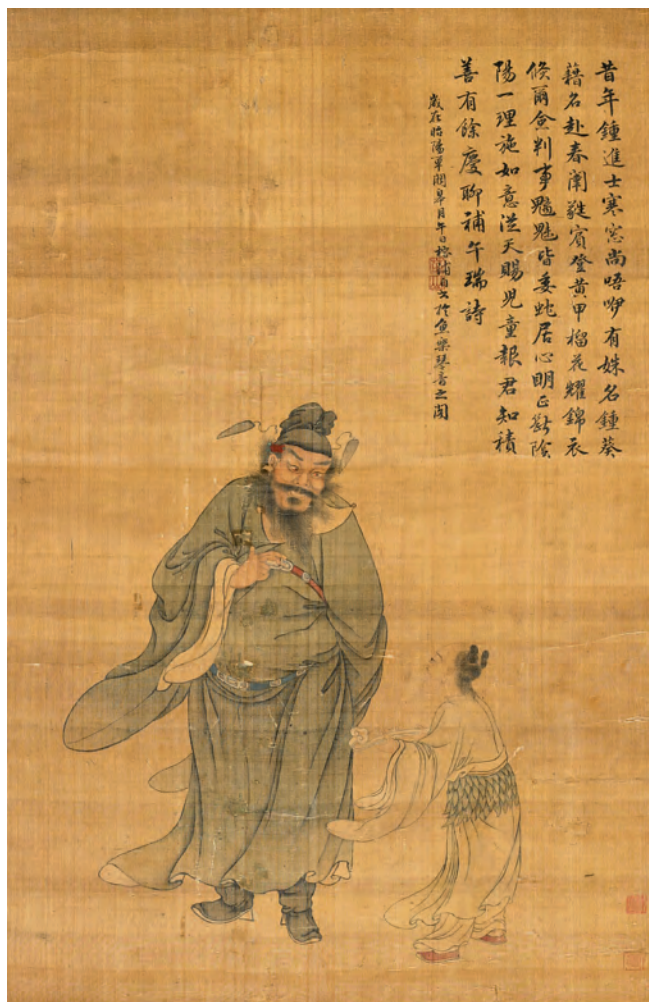 昔年鍾進士寒窓尚唔咿有姝名鍾葵
藉名赴春闈蕤賓登黃甲榴花耀錦衣
倏爾僉判事魑魅皆委蛇居心明正斷陰
陽一理施如意從天賜兒童報君知積
善有餘慶聊補午瑞詩
歲在昭陽單閼皋月午日自書於魚樂琴音之閣